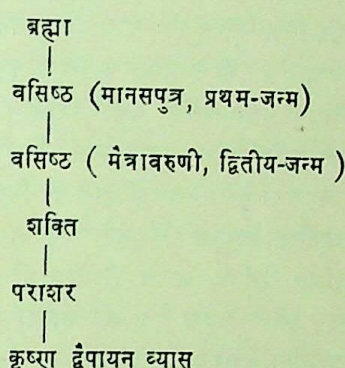 ब्रह्मा
वसिष्ठ (मानसपुत्र, प्रथम-जन्म)
वसिष्ट ( मैत्रावरुणी, द्वितीय-जन्म )
शक्ति
पराशर
कृष्ण द्वैपायन व्यास